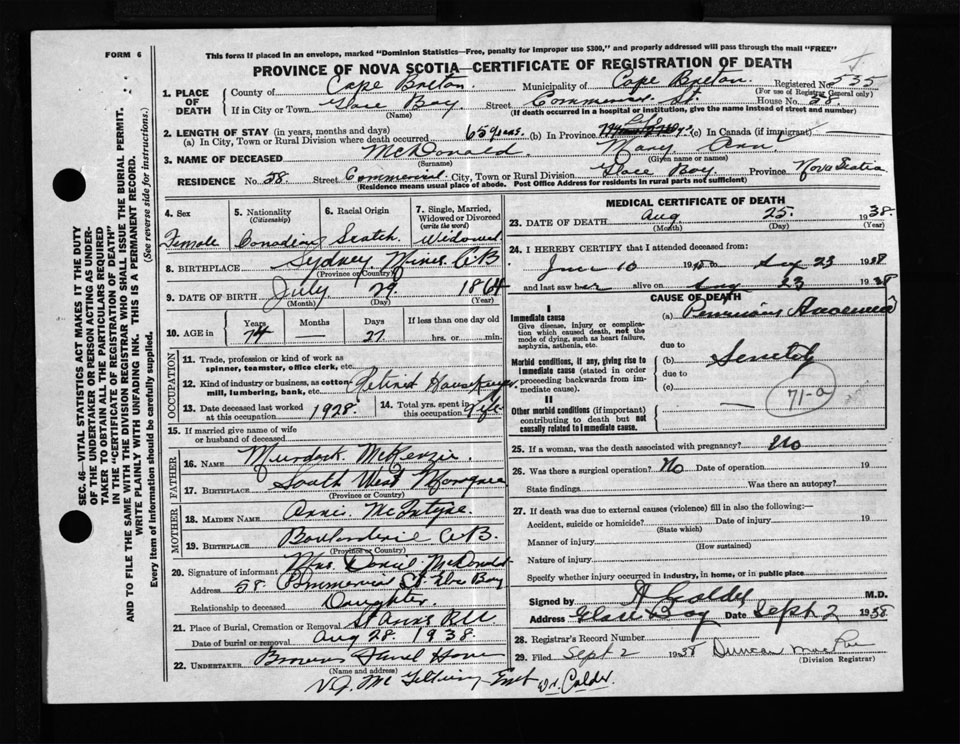 FORM 6
This form if placed in an envelope, marked "Dominion Statistics—Free, penalty for improper use $300," and properly addressed will pass through the mail "FREE"
PROVINCE OF NOVA SCOTIA—CERTIFICATE OF REGISTRATION OF DEATH
1. PLACE OF DEATH County of Cape Breton Municipality of Cape Breton Registered No. 535
(For use of Registrar General only)
If in City or Town Glace Bay Street Commercial St House No. 58.
(Name) (If death occurred in a hospital or institution, give the name instead of street and number)
2. LENGTH OF STAY (in years, months and days)
(a) In City, Town or Rural Division where death occurred 65 years. (b) In Province (c) In Canada (if immigrant)
3. NAME OF DECEASED McDonald. Mary Ann
(Surname) (Given name or names)
RESIDENCE No. 58. Street Commercial City, Town or Rural Division Glace Bay Province Nova Scotia
(Residence means usual place of abode. Post Office Address for residents in rural parts not sufficient)
4. Sex 5. Nationality (Citizenship) 6. Racial Origin 7. Single, Married, Widowed or Divorced (write the word)
Female Canadian Scotch. Widowed
8. BIRTHPLACE Sydney Mines C.B
(Province or Country)
9. DATE OF BIRTH July 29 1864
(Month) (Day) (Year)
10. AGE in Years Months Days If less than one day old
74 — 27 hrs. or min.
OCCUPATION
11. Trade, profession or kind of work as spinner, teamster, office clerk, etc.
12. Kind of industry or business, as cotton mill, lumbering, bank, etc. Retired Housekeeper.
13. Date deceased last worked at this occupation 1928. 14. Total yrs. spent in this occupation Life
15. If married give name of wife or husband of deceased
FATHER
16. NAME Murdock McKenzie
17. BIRTHPLACE South West Margaree
(Province or Country)
MOTHER
18. MAIDEN NAME Annie. McIntyre
19. BIRTHPLACE Boularderie C.B.
(Province or Country)
20. Signature of informant Mrs. Daniel McDonald
Address 58. Commercial St. Glace Bay
Relationship to deceased Daughter.
21. Place of Burial, Cremation or Removal St Anns
Date of burial or removal Aug 28. 1938.
22. UNDERTAKER Funeral Home
(Name and address)
Dr. Calder
MEDICAL CERTIFICATE OF DEATH
23. DATE OF DEATH Aug 25. 1938.
(Month) (Day) (Year)
24. I HEREBY CERTIFY that I attended deceased from:
June 10 19 to Aug 23 1938
and last saw her alive on Aug 23 1938
CAUSE OF DEATH
I
Immediate cause
Give disease, injury or complication which caused death, not the mode of dying, such as heart failure, asphyxia, asthenia, etc.
(a) Pernicious Anaemia
due to
Morbid conditions, if any, giving rise to immediate cause (stated in order proceeding backwards from immediate cause).
(b) Senility
due to
(c)
71-a
II
Other morbid conditions (if important) contributing to death but not causally related to immediate cause.
25. If a woman, was the death associated with pregnancy? No
26. Was there a surgical operation? No Date of operation 19
State findings Was there an autopsy?
27. If death was due to external causes (violence) fill in also the following:—
Accident, suicide or homicide? Date of injury 19
(State which)
Manner of injury
(How sustained)
Nature of injury
Specify whether injury occurred in industry, in home, or in public place
Signed by A Calder M.D.
Address Glace Bay Date Sept 2 1938.
28. Registrar's Record Number
29. Filed Sept 2 1938 Duncan MacRae
(Division Registrar)
SEC. 46—VITAL STATISTICS ACT MAKES IT THE DUTY
OF THE UNDERTAKER OR PERSON ACTING AS UNDERTAKER
TO OBTAIN ALL THE PARTICULARS REQUIRED
IN THE "CERTIFICATE OF REGISTRATION OF DEATH"
AND TO FILE THE SAME WITH THE DIVISION REGISTRAR WHO SHALL ISSUE THE BURIAL PERMIT.
WRITE PLAINLY WITH UNFADING INK. THIS IS A PERMANENT RECORD.
Every item of information should be carefully supplied. (See reverse side for instructions.)